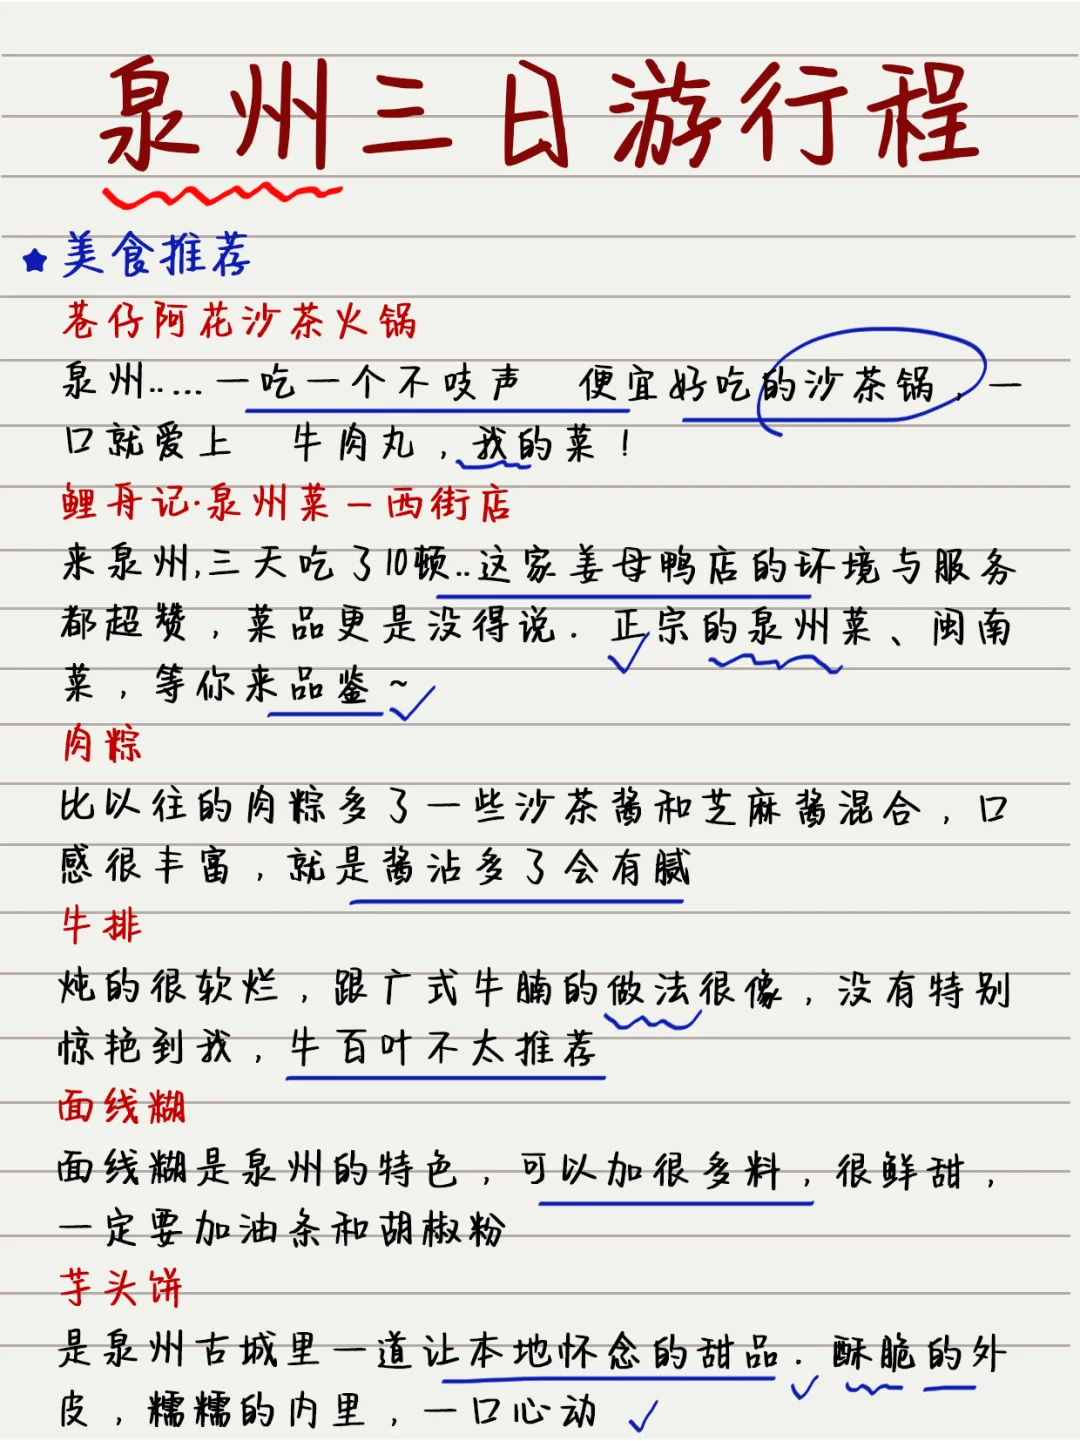 泉州三日游行程
美食推荐
巷仔阿花沙茶火锅
泉州..... 一吃一个不吱声 便宜好吃的沙茶锅，一
口就爱上 牛肉丸，我的菜！
鲤舟记·泉州菜－西街店
来泉州,三天吃了10顿..这家姜母鸭店的环境与服务
都超赞，菜品更是没得说．正宗的泉州菜、闽南
菜，等你来品鉴~
肉粽
比以往的肉粽多了一些沙茶酱和芝麻酱混合，口
感很丰富，就是酱沾多了会有腻
牛排
炖的很软烂，跟广式牛腩的做法很像，没有特别
惊艳到我，牛百叶不太推荐
面线糊
面线糊是泉州的特色，可以加很多料，很鲜甜，
一定要加油条和胡椒粉
芋头饼
是泉州古城里一道让本地怀念的甜品．酥脆的外
皮，糯糯的内里，一口心动